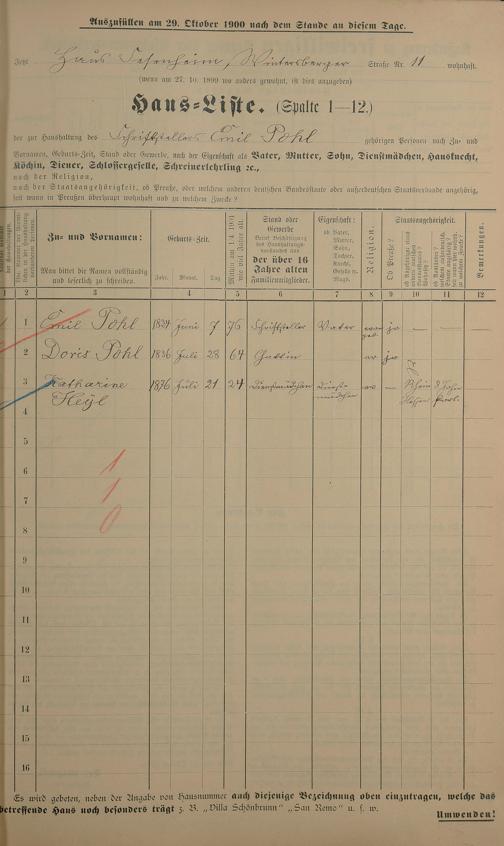 Auszufüllen am 29. Oktober 1900 nach dem Stande an diesem Tage.
Jetzt Haus Sesenheim, Wintersberger Straße Nr. 11 wohnhaft.
(wenn am 27. 10. 1899 wo anders gewohnt, ist dies anzugeben)
Haus-Liste. (Spalte 1—12.)
der zur Haushaltung des Schriftstellers Emil Pohl gehörigen Personen nach Zu- und
Vornamen, Geburts-Zeit, Stand oder Gewerbe, nach der Eigenschaft als Vater, Mutter, Sohn, Dienstmädchen, Hausknecht,
Köchin, Diener, Schlossergeselle, Schreinerlehrling ꝛc.,
nach der Religion,
nach der Staatsangehörigkeit, ob Preuße, oder welchem anderen deutschen Bundesstaate oder außerdeutschen Staatsverbande angehörig,
seit wann in Preußen überhaupt wohnhaft und zu welchem Zwecke?
Zu- und Vornamen:
Man bittet die Namen vollständig und leserlich zu schreiben.
Geburts-Zeit.
Jahr. Monat. Tag
Stand oder Gewerbe
der über 16 Jahre alten Familienmitglieder.
Eigenschaft:
ob Vater, Mutter, Sohn, Tochter, Knecht, Geselle u. Magd.
Religion.
Staatsangehörigkeit.
Ob Preuße?
Bemerkungen.
1 2 3 4 5 6 7 8 9 10 11 12
1 Emil Pohl 1824 Juni 7 76 Schriftsteller Vater ja — —
2 Doris Pohl 1836 Juli 28 64 Gattin ja
3 Katharine 1876 Juli 21 24 Dienstmädchen Dienst- — 8 Jahre
4 Heyl mädchen Hessen
5
6
7
8
9
10
11
12
13
14
15
16
1
1
0
Es wird gebeten, neben der Angabe von Hausnummer auch diejenige Bezeichnung oben einzutragen, welche das
betreffende Haus noch besonders trägt z. B. „Villa Schönbrunn" „San Remo" u. s. w.
Umwenden!